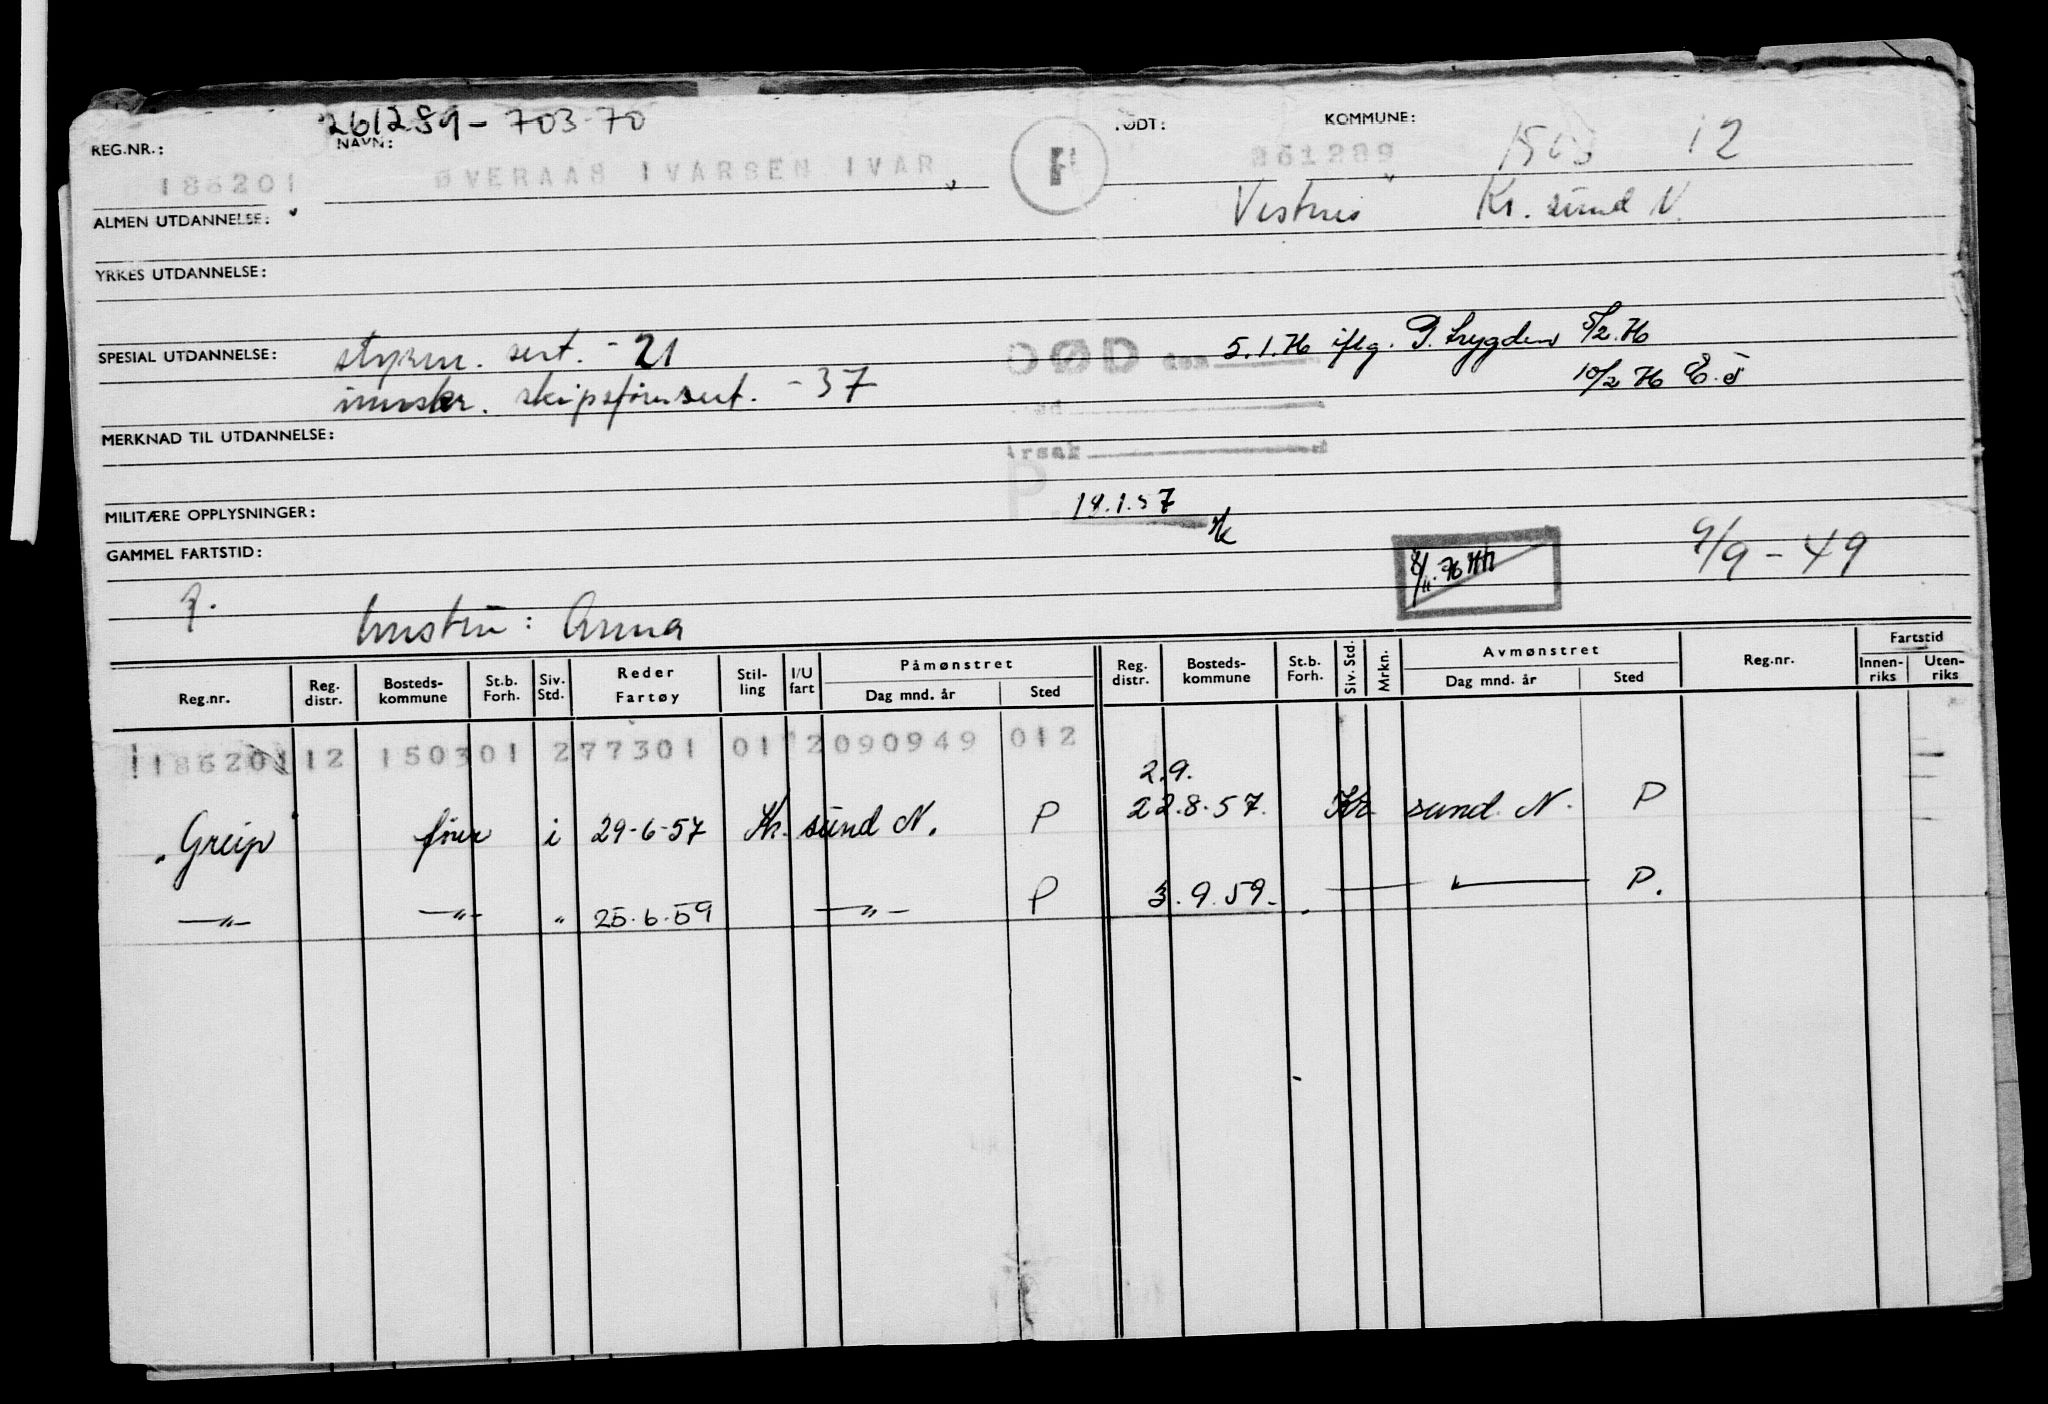 261289-703-70
REG.NR.: NAVN: FØDT: KOMMUNE:
186201 ØVERAAS IVARSEN IVAR H 261289 1503 12
ALMEN UTDANNELSE: Vestnes Kr. sund N.
YRKES UTDANNELSE:
SPESIAL UTDANNELSE: styrm. sert. - 21 DØD den 5.1.76 iflg. P. trygden 5/2.76
innskr. skipsførersert. - 37 10/2 76
MERKNAD TIL UTDANNELSE: Årsak
P
MILITÆRE OPPLYSNINGER: 14.1.57
GAMMEL FARTSTID: 9/9-49
hustru: Anna
Reg.nr. Reg. distr. Bosteds- kommune St.b. Forh. Siv. Std. Reder Fartøy Stil- ling I/U fart Påmønstret Dag mnd. år Sted Reg. distr. Bosteds- kommune St.b. Forh. Siv. Std. Mrkn. Avmønstret Dag mnd. år Sted Reg.nr. Fartstid Innen- riks Uten- riks
186201 12 150301 277301 01 2090949 012
2.9.
"Greip" fører i 29-6-57 Kr. sund N. P 22.8.57. Kr sund N. P
—"— —"— " 25.6.59 —"— P 3.9.59. —"— P.